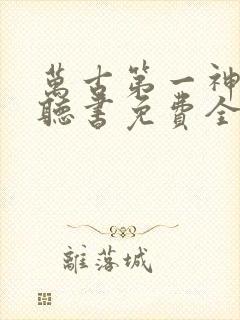 萬古第一神
聽書免費全
離落城